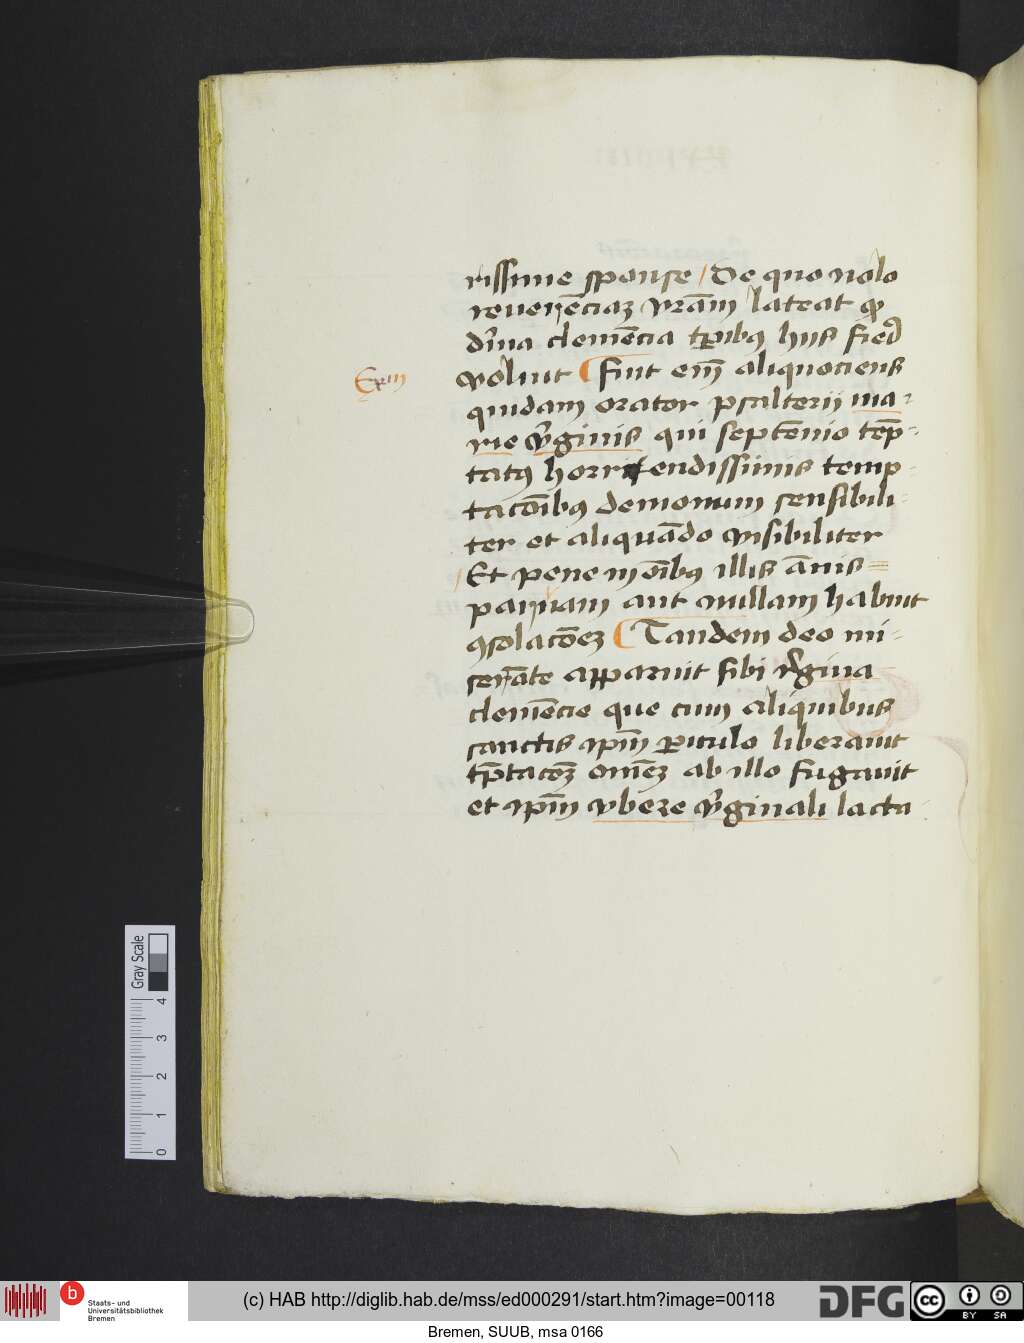 rissime sponse / De quo nolo
reuerēciaꝫ vr̄am lateat qͦ
diͥna clemēcia tribꝰ hiis fieͬ
voluit Fuit em̄ aliquociens
Exm
quidam orator psalterii ma-
rie vͥginis qui septenio tēp-
tatꝰ horrendissimis temp-
tacōibꝰ demonum sensibili-
ter et aliquādo insibiliter
Et pene in oībꝰ illis ānis
paruam aut nullam habuit
ꝯsolacōeꝫ Tandem deo mi-
serāte apparuit sibi rͤgina
clemēcie que cum aliquibus
sanctis ipm̄ periculo liberauit
tp̄tacōꝫ omēꝫ ab illo fugauit
et ipm̄ vbere vͥginali lacta-
Gray Scale
0 1 2 3 4
Staats- und
Universitätsbibliothek
Bremen
(c) HAB http://diglib.hab.de/mss/ed000291/start.htm?image=00118
DFG
cc BY SA
Bremen, SUUB, msa 0166